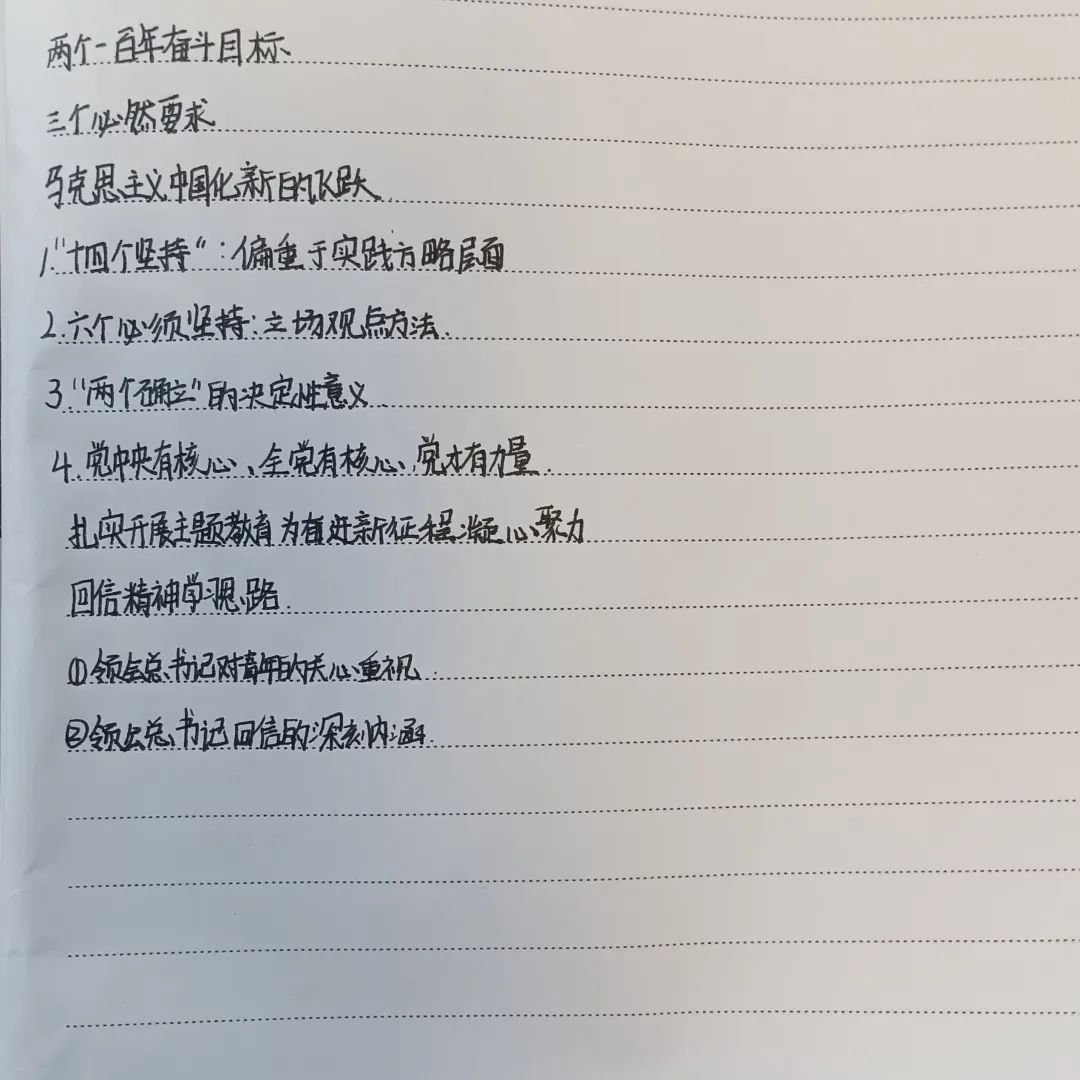 两个一百年奋斗目标
三个必然要求
马克思主义中国化新的飞跃
1."十四个坚持"：偏重于实践方略层面
2.六个必须坚持：立场观点方法.
3."两个确立"的决定性意义
4.党中央有核心、全党有核心、党才有力量.
扎实开展主题教育为奋进新征程凝心聚力
回信精神学习思路.
①领会总书记对青年的关心重视
②领会总书记回信的深刻内涵.